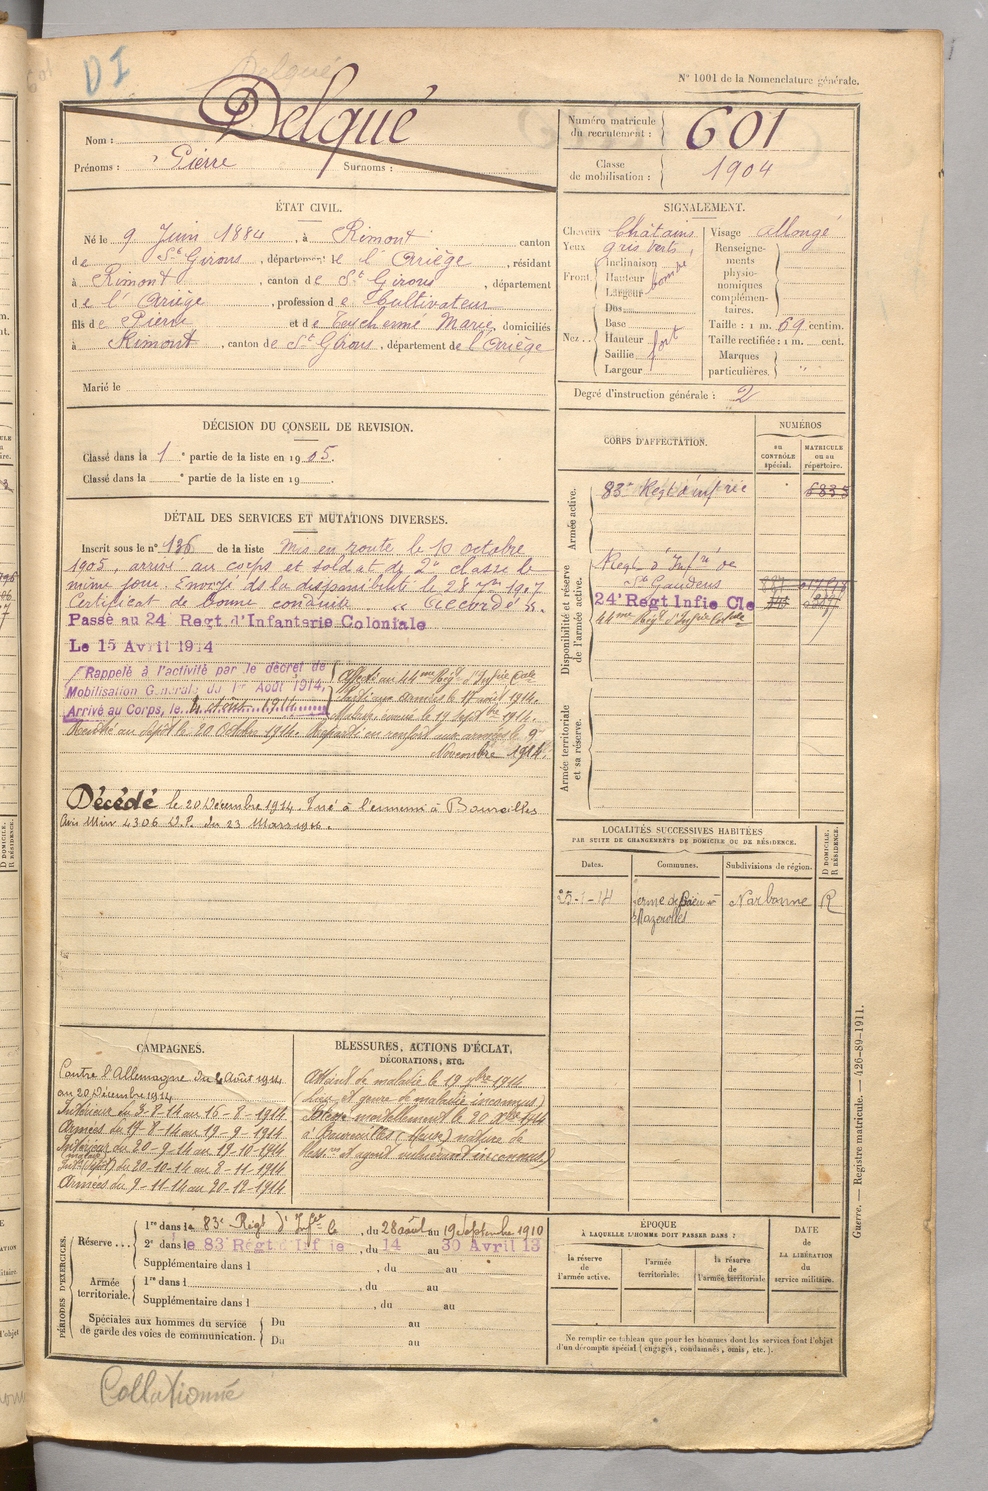 DI
Delqué
N° 1001 de la Nomenclature générale.
Nom : Delqué
Prénoms : Pierre Surnoms :
Numéro matricule du recrutement : 601
Classe de mobilisation : 1904
ÉTAT CIVIL.
Né le 9 Juin 1884, à Rimont canton
de St Girons, département de l'Ariège, résidant
à Rimont, canton de St Girons, département
de l'Ariège, profession de Cultivateur
fils de Pierre et de Marie, domiciliés
à Rimont, canton de St Girons, département de l'Ariège
Marié le
SIGNALEMENT.
Cheveux Châtains
Yeux gris verts
Front. Inclinaison
Hauteur bombé
Largeur
Nez.. Dos
Base
Hauteur fort
Saillie
Largeur
Visage allongé
Renseignements physionomiques complémentaires.
Taille : 1 m. 69 centim.
Taille rectifiée : 1 m. cent.
Marques particulières. "
Degré d'instruction générale : 2
DÉCISION DU CONSEIL DE REVISION.
Classé dans la 1e partie de la liste en 1905.
Classé dans la e partie de la liste en 19 .
CORPS D'AFFECTATION.
NUMÉROS
au CONTRÔLE spécial.
MATRICULE ou au répertoire.
Armée active.
83e Regt d'infrie
Disponibilité et réserve de l'armée active.
Regt d'Infrie de
St Gaudens
24e Regt Infie Cle
44me Régt d'Infrie Colale
Armée territoriale et sa réserve.
DÉTAIL DES SERVICES ET MUTATIONS DIVERSES.
Inscrit sous le n° 136 de la liste Mis en route le 10 octobre
1905, arrivé au corps et soldat de 2e classe le
même jour. Envoyé ds la disponibilité le 28 7bre 1907
Certificat de bonne conduite "Accordé".
Passé au 24 Regt. d'Infanterie Coloniale
Le 15 Avril 1914
Rappelé à l'activité par le décret de
Mobilisation Générale du 1er Août 1914,
Arrivé au Corps, le 4 août 1914
Affecté au 44me Régt d'Infrie Cole
Parti aux armées le 17 août 1914.
Malade évacué le 19 Septbre 1914.
Rentré au dépôt le 20 Octobre 1914. Reparti en renfort aux armées le 9
Novembre 1914.
Décédé le 20 Décembre 1914. Tué à l'ennemi à Boureilles
Avis Min 4306 D.P. du 23 Mars 1916.
LOCALITÉS SUCCESSIVES HABITÉES
PAR SUITE DE CHANGEMENTS DE DOMICILE OU DE RÉSIDENCE.
Dates.
Communes.
Subdivisions de région.
D DOMICILE. R RÉSIDENCE.
25-1-14
Mazerolles
Narbonne
R
CAMPAGNES.
Contre l'Allemagne du 4 Août 1914
au 20 Décembre 1914
Intérieur du 3-8-14 au 16-8-1914
Armées du 17-8-14 au 19-9-1914
Intérieur du 20-9-14 au 19-10-1914
(malade)
Int (dépôt) du 20-10-14 au 8-11-1914
Armées du 9-11-14 au 20-12-1914
BLESSURES, ACTIONS D'ÉCLAT,
DÉCORATIONS, ETC.
Atteint de maladie le 19 7bre 1914
(Lieu et genre de maladie inconnus)
mortellement le 20 Xbre 1914
à Boureuilles (Meuse) nature de
bless. et agent vulnérant inconnus)
PÉRIODES D'EXERCICES.
Réserve... 1re dans le 83e Régt d'Infie le, du 28 août au 19 Septembre 1910
2e dans le 83 Régt Infie, du 14 au 30 Avril 13
Supplémentaire dans l , du au
Armée territoriale. 1re dans l , du au
Supplémentaire dans l , du au
Spéciales aux hommes du service de garde des voies de communication. Du au
Du au
ÉPOQUE
À LAQUELLE L'HOMME DOIT PASSER DANS :
la réserve de l'armée active.
l'armée territoriale.
la réserve de l'armée territoriale
DATE
de
LA LIBÉRATION
du
service militaire.
Ne remplir ce tableau que pour les hommes dont les services font l'objet
d'un décompte spécial (engagés, condamnés, omis, etc.).
Guerre. — Registre matricule. — 426-89-1911.
Collationné